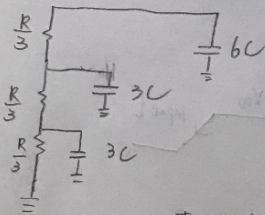 R/3
6C
R/3
3C
R/3
3C